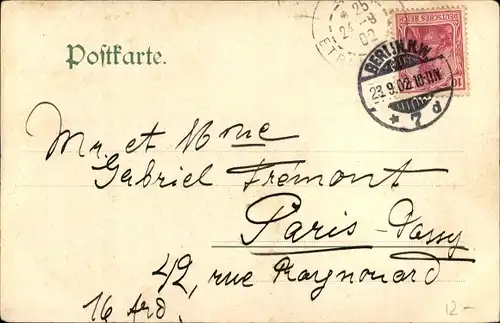 Postkarte.
25
24-9
02
ET
DEUTSCHES REICH
10
BERLIN N.W.
23.9.02.10-11N.
* 7 d
Mr. et Mme
Gabriel Frémont
Paris-Passy
42, rue Raynouard
16 Ard.
12-